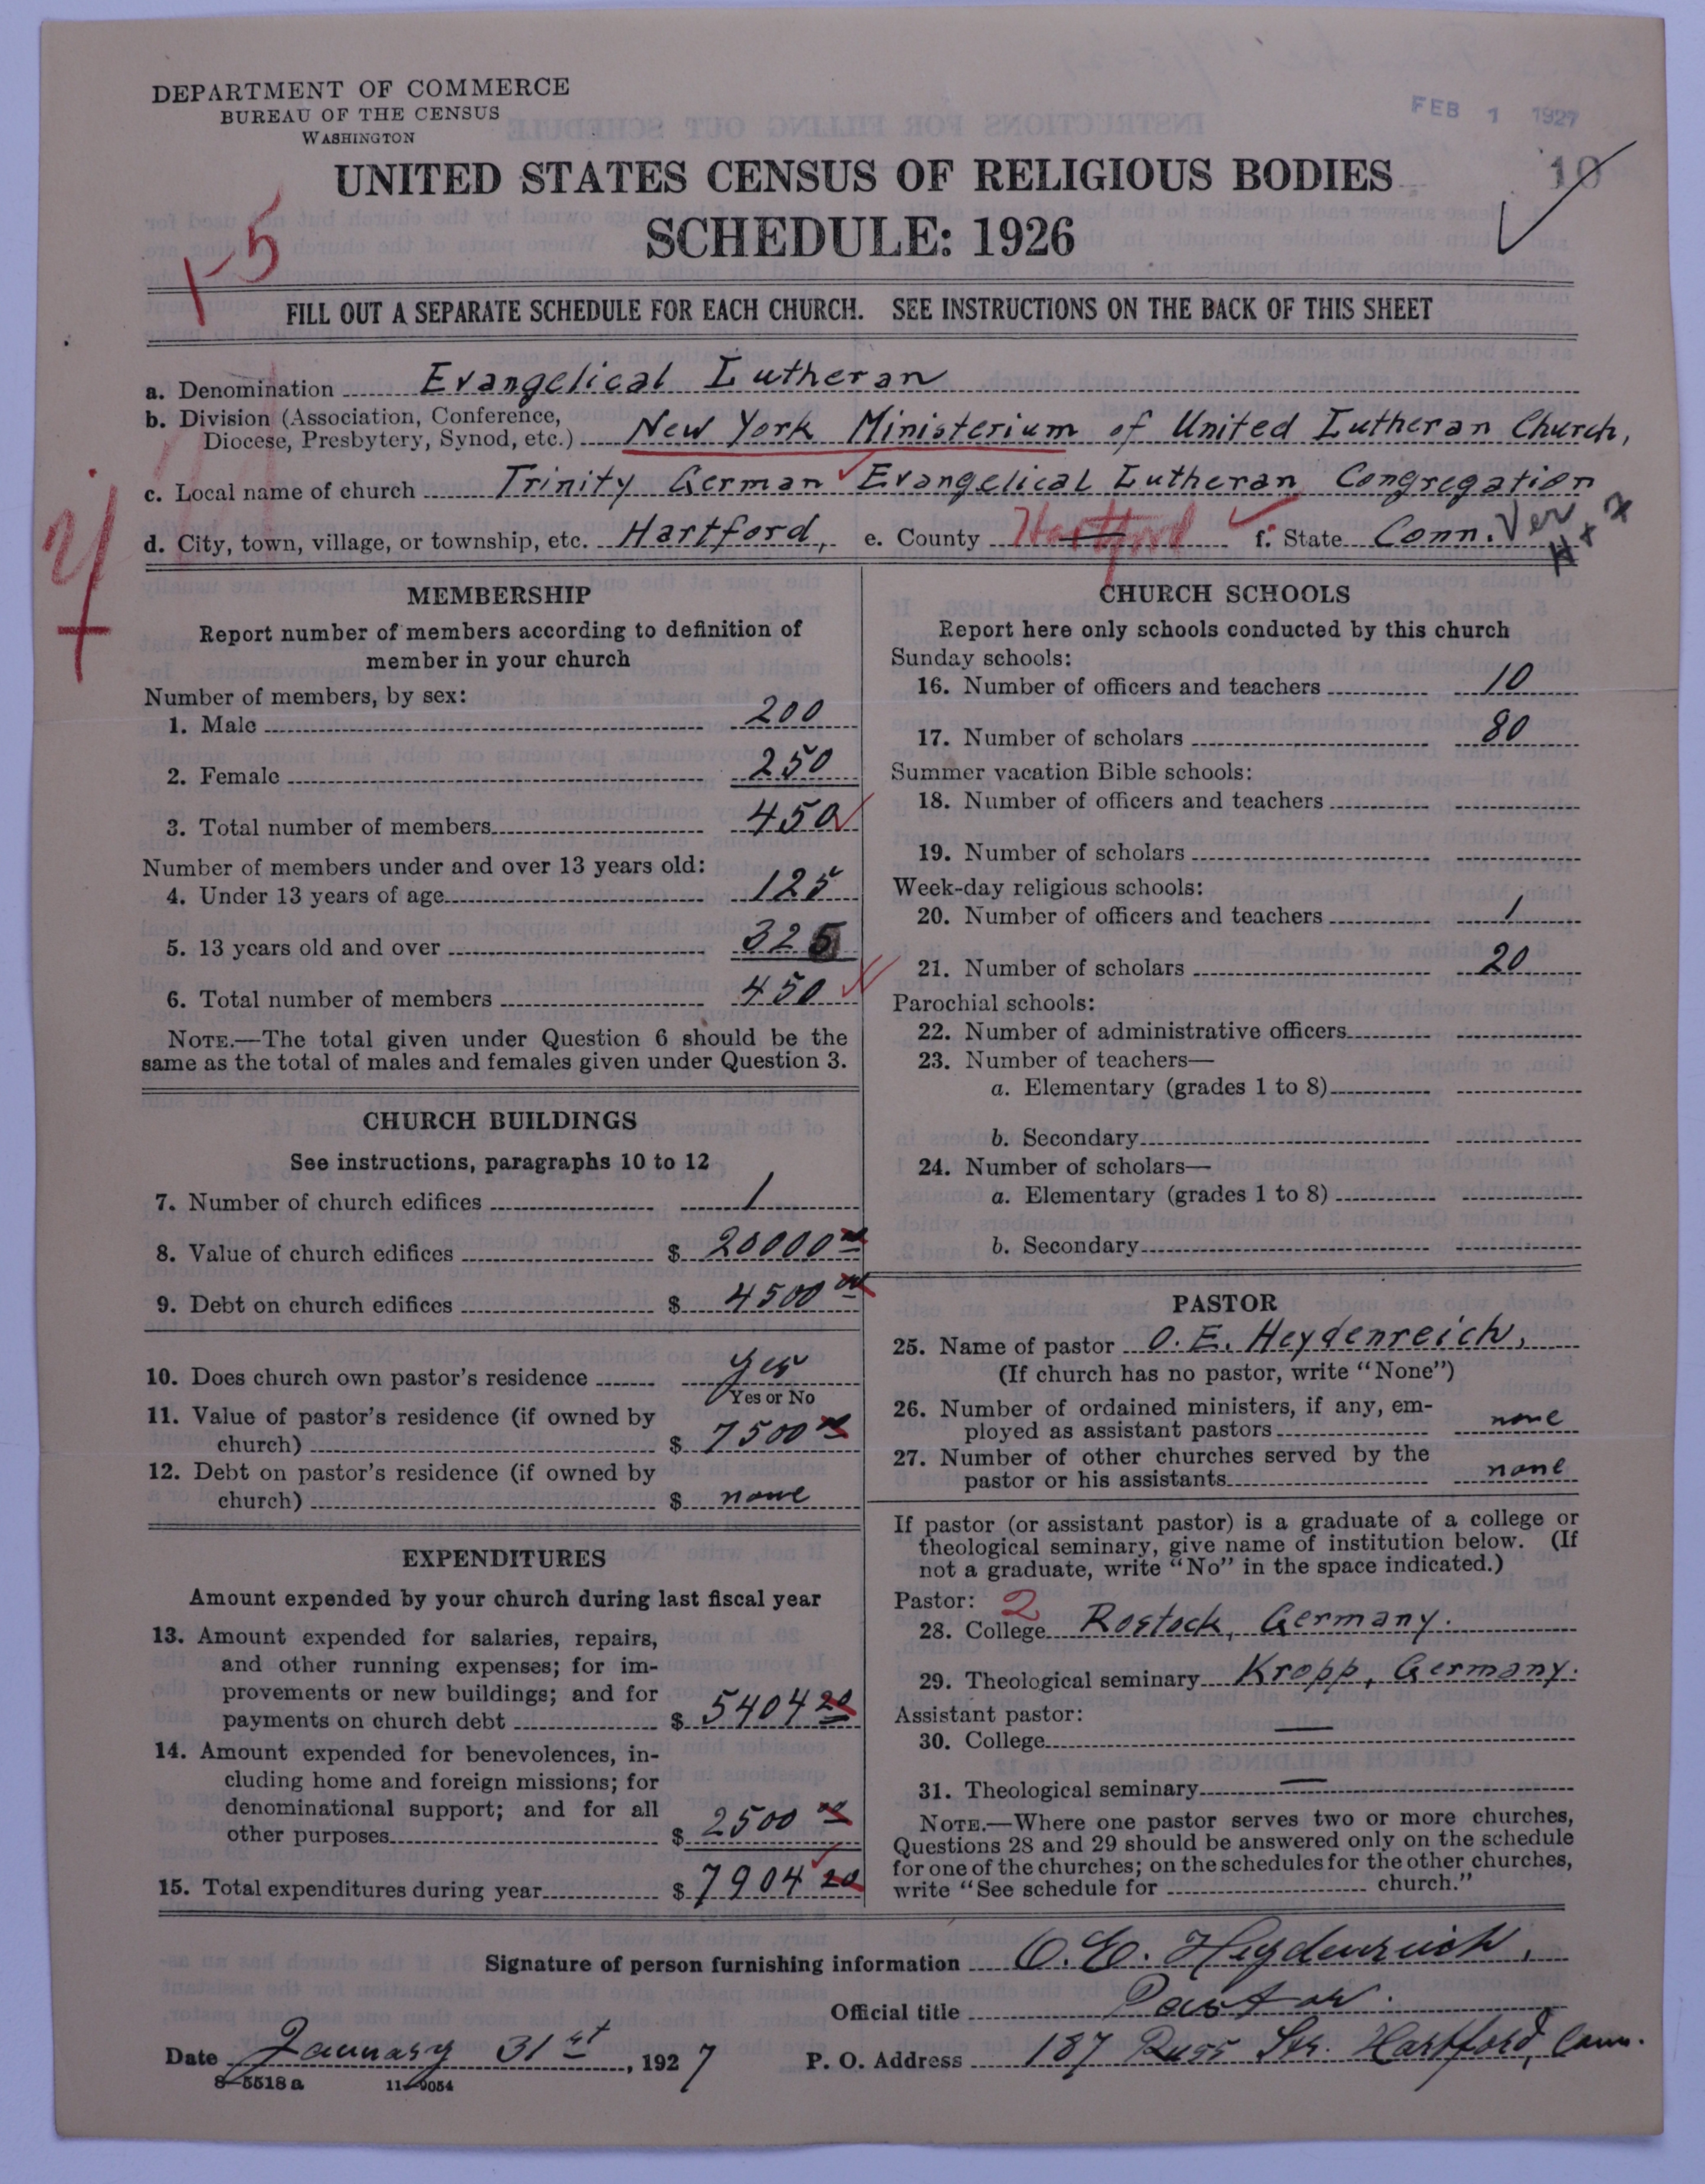 DEPARTMENT OF COMMERCE
BUREAU OF THE CENSUS
WASHINGTON
FEB 1 1927
UNITED STATES CENSUS OF RELIGIOUS BODIES
10
SCHEDULE: 1926
1-5
FILL OUT A SEPARATE SCHEDULE FOR EACH CHURCH. SEE INSTRUCTIONS ON THE BACK OF THIS SHEET
a. Denomination Evangelical Lutheran
b. Division (Association, Conference,
Diocese, Presbytery, Synod, etc.) New York Ministerium of United Lutheran Church,
c. Local name of church Trinity German Evangelical Lutheran Congregation
d. City, town, village, or township, etc. Hartford, e. County Hartford f. State Conn. Ver
MEMBERSHIP
Report number of members according to definition of
member in your church
Number of members, by sex:
1. Male 200
2. Female 250
3. Total number of members 450
Number of members under and over 13 years old:
4. Under 13 years of age 125
5. 13 years old and over 325
6. Total number of members 450
NOTE.—The total given under Question 6 should be the
same as the total of males and females given under Question 3.
CHURCH BUILDINGS
See instructions, paragraphs 10 to 12
7. Number of church edifices 1
8. Value of church edifices $ 20000 00
9. Debt on church edifices $ 4500 00
10. Does church own pastor's residence yes
Yes or No
11. Value of pastor's residence (if owned by
church) $ 7500 00
12. Debt on pastor's residence (if owned by
church) $ none
EXPENDITURES
Amount expended by your church during last fiscal year
13. Amount expended for salaries, repairs,
and other running expenses; for im-
provements or new buildings; and for
payments on church debt $ 5404 20
14. Amount expended for benevolences, in-
cluding home and foreign missions; for
denominational support; and for all
other purposes $ 2500 00
15. Total expenditures during year $ 7904 20
CHURCH SCHOOLS
Report here only schools conducted by this church
Sunday schools:
16. Number of officers and teachers 10
17. Number of scholars 80
Summer vacation Bible schools:
18. Number of officers and teachers
19. Number of scholars
Week-day religious schools:
20. Number of officers and teachers 1
21. Number of scholars 20
Parochial schools:
22. Number of administrative officers
23. Number of teachers—
a. Elementary (grades 1 to 8)
b. Secondary
24. Number of scholars—
a. Elementary (grades 1 to 8)
b. Secondary
PASTOR
25. Name of pastor O. E. Heydenreich,
(If church has no pastor, write "None")
26. Number of ordained ministers, if any, em-
ployed as assistant pastors none
27. Number of other churches served by the
pastor or his assistants none
If pastor (or assistant pastor) is a graduate of a college or
theological seminary, give name of institution below. (If
not a graduate, write "No" in the space indicated.)
Pastor: 2
28. College Rostock, Germany.
29. Theological seminary Kropp, Germany.
Assistant pastor:
30. College —
31. Theological seminary —
NOTE.—Where one pastor serves two or more churches,
Questions 28 and 29 should be answered only on the schedule
for one of the churches; on the schedules for the other churches,
write "See schedule for church."
Signature of person furnishing information O. E. Heydenreich,
Official title Pastor.
Date January 31st, 1927 P. O. Address 187 Russ Str. Hartford, Conn.
8-5518a 11-9054